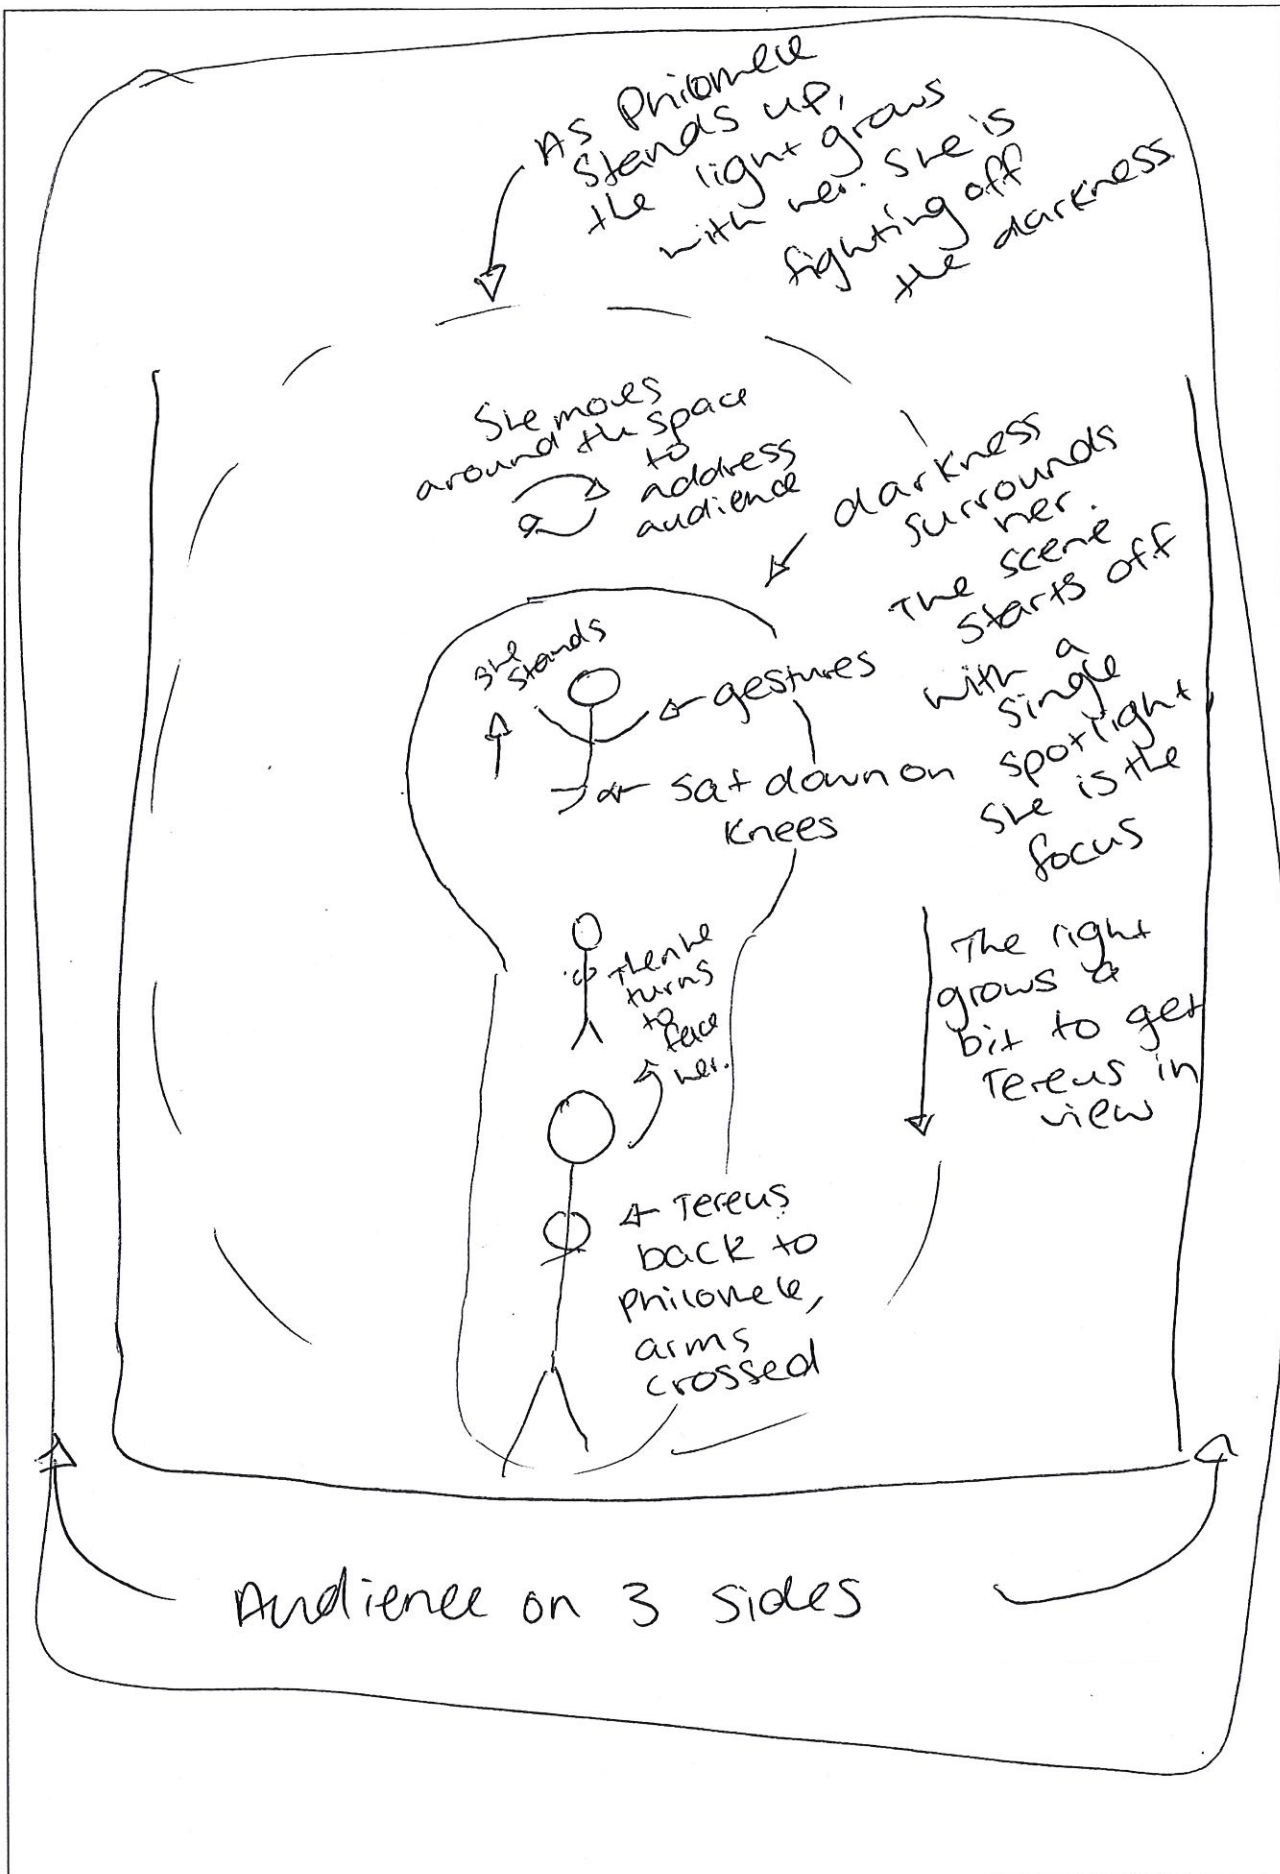 As Philomele
stands up,
the light grows
with her. She is
fighting off
the darkness
She moves
around the space
to
address
audience
darkness
surrounds
her.
The scene
starts off
with a
single
spotlight
She is the
focus
She
stands
gestures
sat down on
knees
Then he
turns
to
face
her.
The light
grows a
bit to get
Tereus in
view
Tereus
back to
philomele,
arms
crossed
Audience on 3 sides